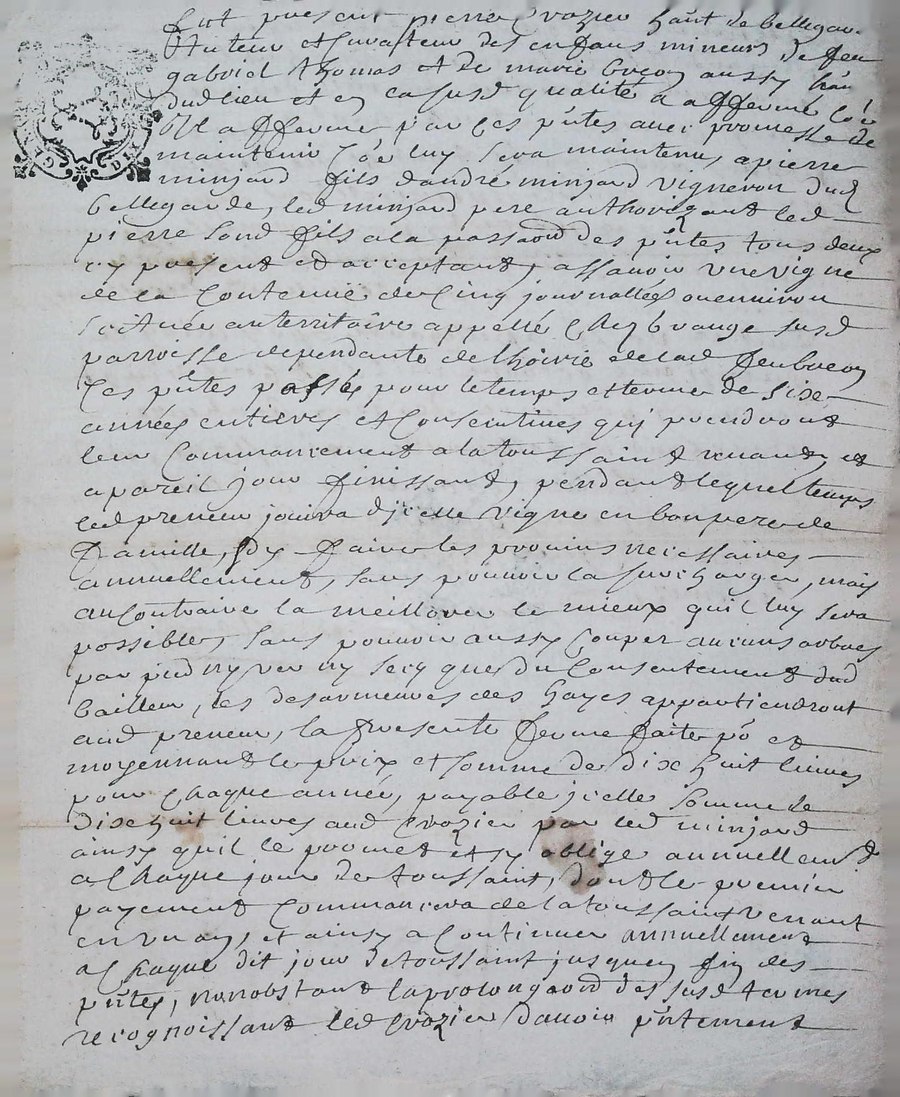 fut present pierre Crozier hant de bellegar
tuteur et curateur des enfans mineurs de feu
gabriel thomas et de marie bucon aussy han
dud lieu et en ca susd qualité a affermé co͞e
il afferme par ces p͞ntes avec promesse de
maintenir co͞e luy sera maintenu a pierre
minjard fils dandré minjard vigneron dud
bellegarde, led minjard pere authorizant led
pierre sond fils a la passaõn des p͞ntes tous deux
cy present et acceptant, assavoir une vigne
de la contenue de cinq journallées ou environ
scituée au territoire appellé chez brange susd
parroisse dependante de lhoirie de lad feu
Ces p͞ntes passée pour le temps et terme de six
années entieres et consecutives qui prendront
leur commancement a la toussaint venant et
a pareil jour finissant, pendant lequel temps
led preneur jouira dicelle vigne en bon pere de
famille, dy faire les provins necessaires
annuellement, sans pouvoir la surcharger, mais
au contraire la meillorer le mieux quil luy sera
possible, sans pouvoir aussy couper aucuns arbres
par pied ny ver ny secq que du consentement dud
bailleur, les desarmeures des hayes appartiendront
aud preneur, la presente ferme faite po et
moyennant le prix et somme de dix huit livres
pour chaque année, payable jcelle somme de
dixe huit livres aud Crozier par led minjard
ainsy quil le promet et sy oblige annuellem͞t
a chaque jour de toussaint, dont le premier
payement commancera de la toussaint venant
en un an, et ainsy a continuer annuellement
a chaque dit jour de toussaint jusquen fin des
p͞ntes, nonobstant la prolongaõn des susd termes
recognoissant led Crozier davoir p͞ntement